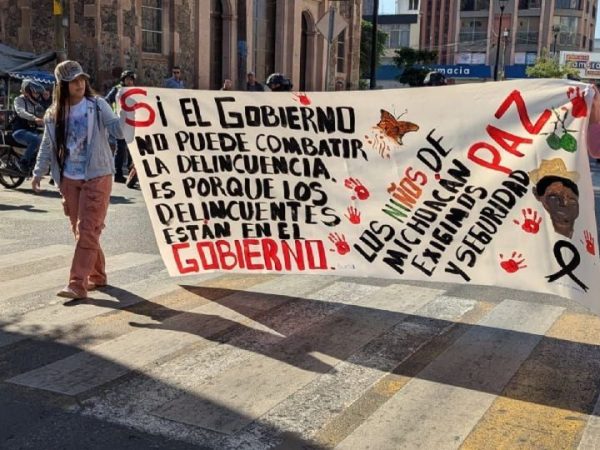 Si EL GOBiERNO
NO PUEDE COMBATIR
LA DELINCUENCIA.
ES PORQUE LOS
DELINCUENTES
ESTÁN EN EL
GOBIERNO.
LOS NIÑOS DE
MICHOACÁN
EXIGIMOS PAZ
Y SEGURIDAD
macia